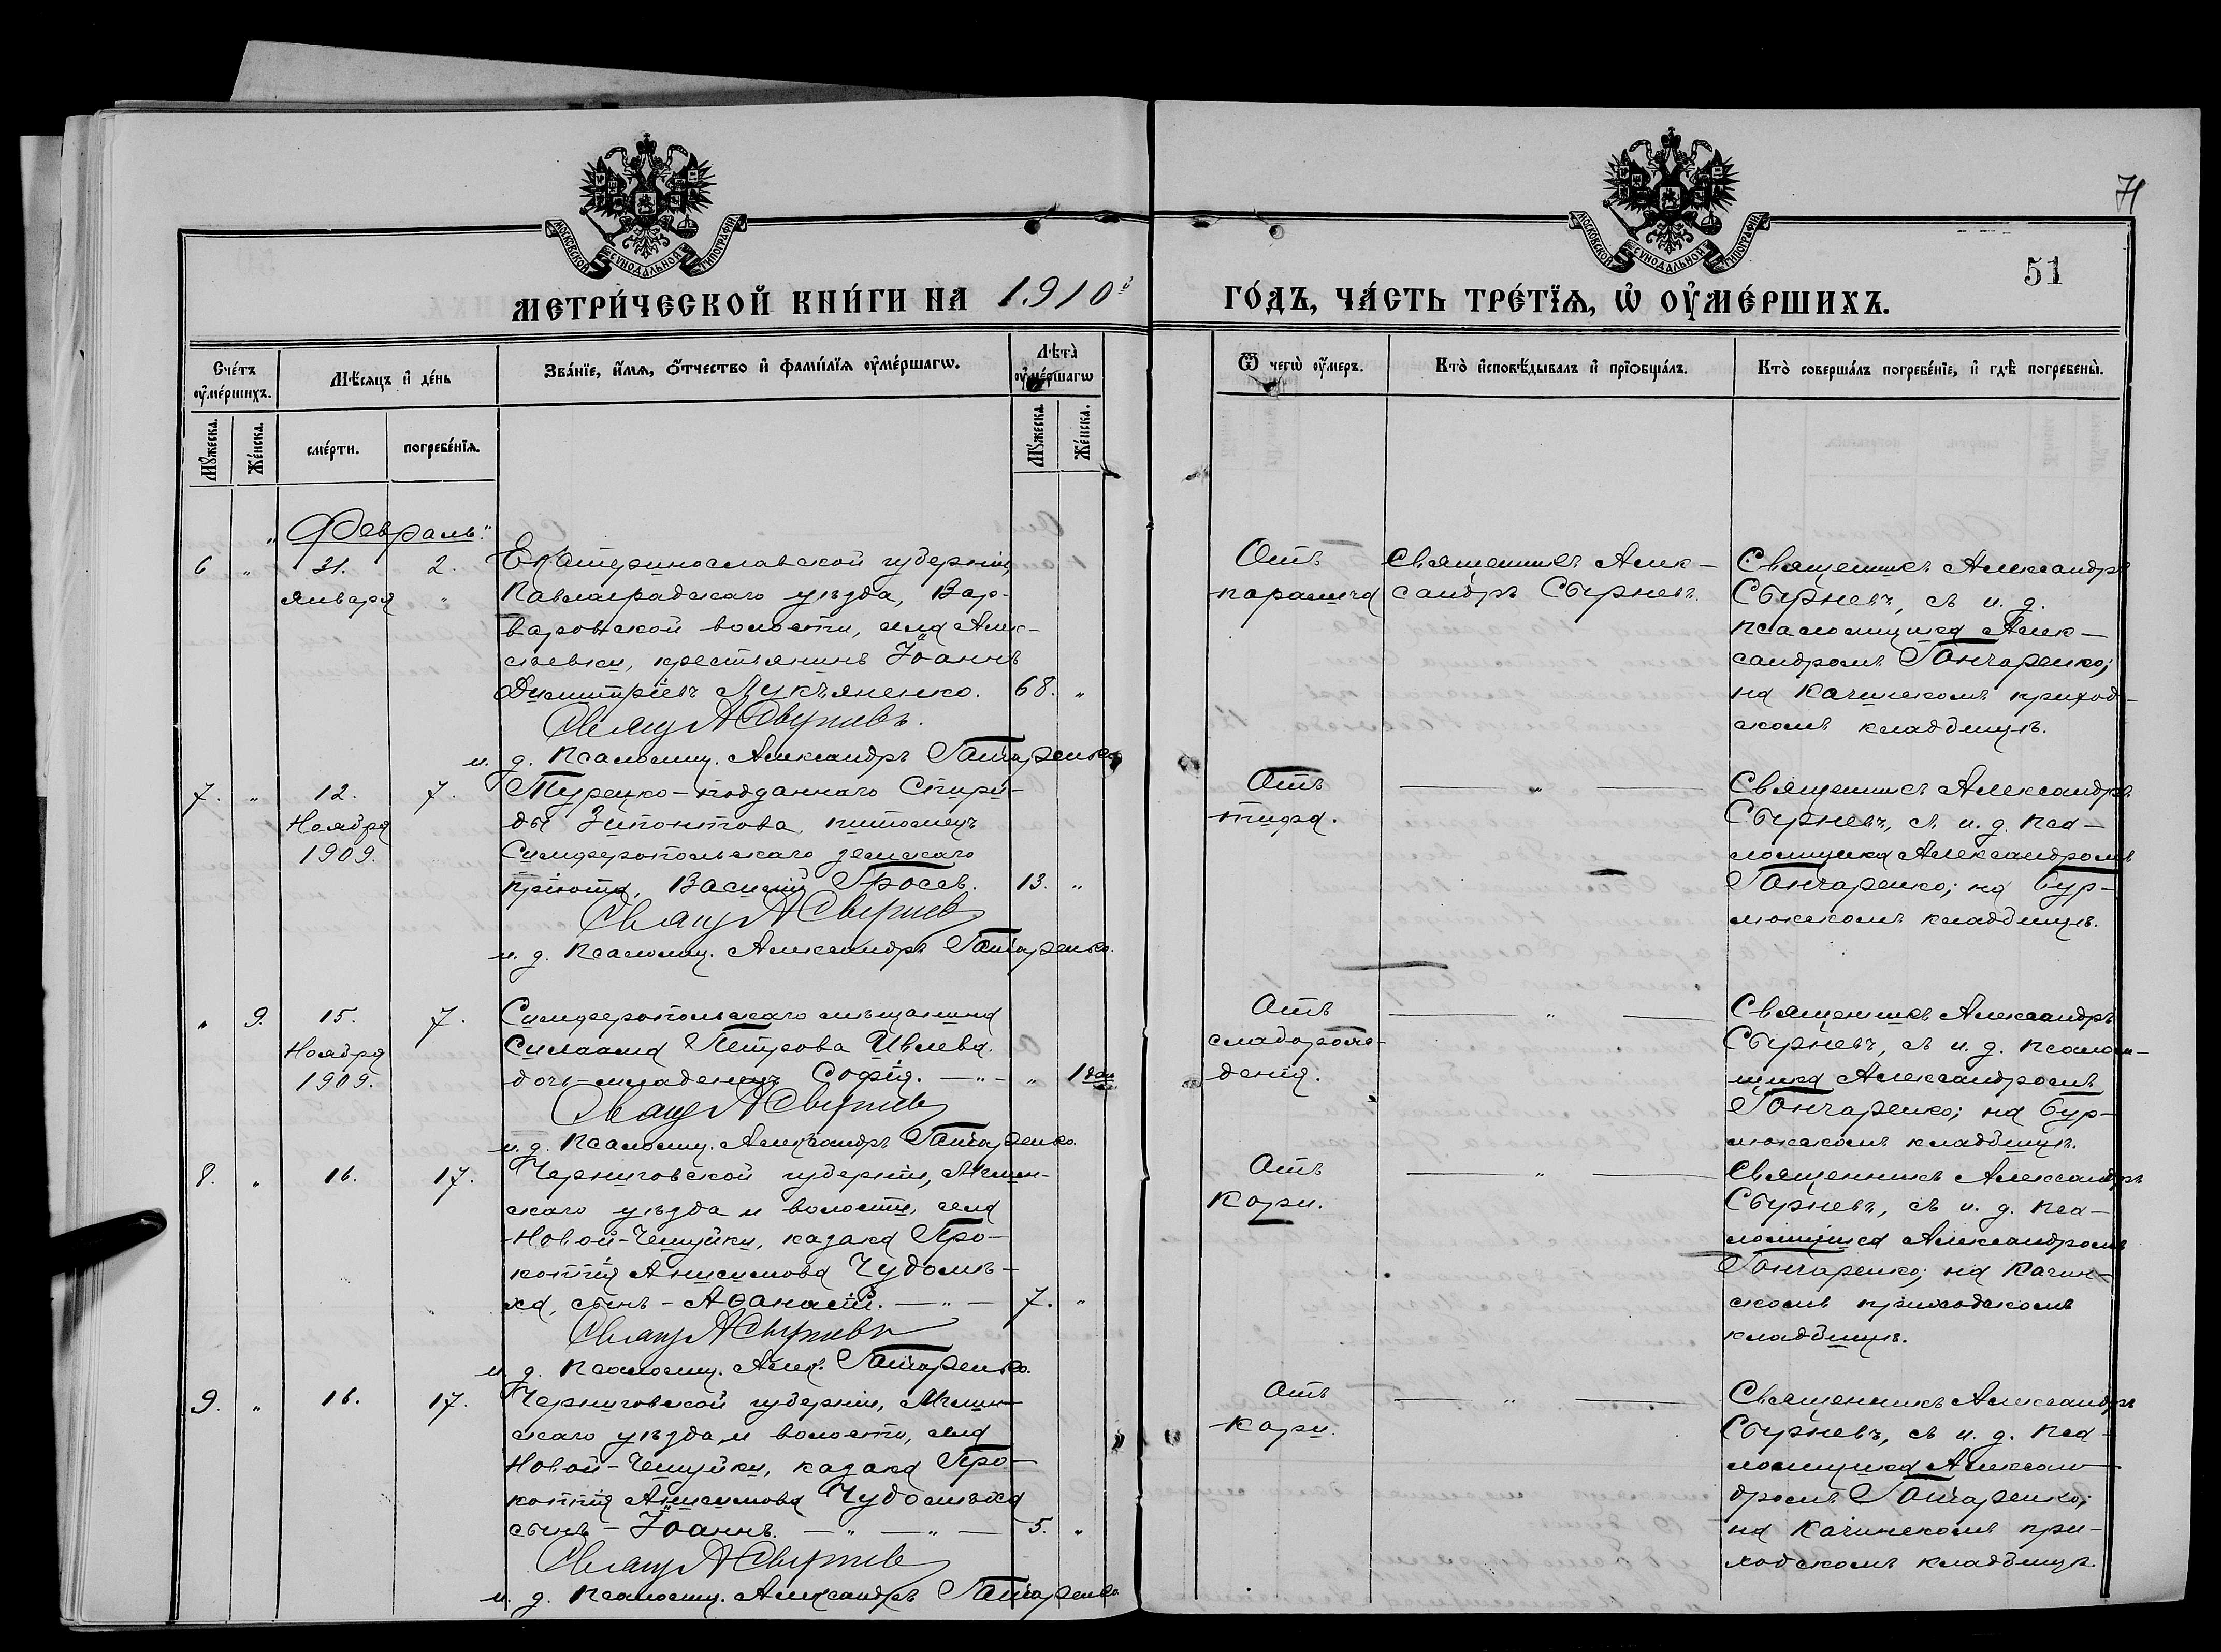 МОСКОВСКОЙ СѴНОДАЛЬНОЙ ТИПОГРАФІИ
МОСКОВСКОЙ СѴНОДАЛЬНОЙ ТИПОГРАФІИ
71
51
МЕТРИ́ЧЕСКОЙ КНИ́ГИ НА 1910й
ГО́ДЪ, ЧА́СТЬ ТРЕ́ТЇѦ, Ѡ҆ ОУ҆МЕ́РШИХЪ.
Сче́тъ оу҆ме́ршихъ.
Мꙋ́жеска.
Же́нска.
Мѣ́сяцъ и҆ де́нь
сме́рти.
погребе́нїѧ.
Зва́нїе, и҆́мѧ, ѻ҆́тчество и҆ фами́лїѧ оу҆ме́ршагѡ.
Лѣ̀та оу҆ме́ршагѡ
Мꙋ́жеска.
Же́нска.
Ѿ чегѡ̀ оу҆́меръ.
Кто̀ и҆сповѣ́дывалъ и҆ прїѻбща́лъ.
Кто̀ соверша́лъ погребе́нїе, и҆ гдѣ̀ погребены̀.
„Февраль“
6 „ 31. января 2. „
Екатеринославской губерніи,
Павлоградскаго уѣзда, Вар-
варовской волости, села Алек-
сѣевки, крестьянинъ Іоаннъ
Димитріевъ Лукъяненко. 68. „
Свящ А Сбирневъ.
и. д. псаломщ. Александръ Гончаренко
Отъ
паралича
Священникъ Алек-
сандръ Сбирневъ.
Священникъ Александръ
Сбирневъ, съ и. д.
псаломщика Алек-
сандромъ Гончаренко;
на Качинскомъ приход-
скомъ кладбищѣ.
7. „ 12. Ноября 1909. 7.
Турецко-подданнаго Спири-
ды питомецъ
Симферопольскаго земскаго
пріюта, Василій 13. „
Свящ А Сбирневъ
и. д. псаломщ. Александръ Гончаренко.
Отъ
тифа.
— „ —
Священникъ Александръ
Сбирневъ, съ и. д. пса-
ломщика Александромъ
Гончаренко; на Бур-
люкскомъ кладбищѣ.
„ 9. 15. Ноября 1909. 7.
Симферопольскаго мѣщанина
Силаама Петрова Ивлева
дочь-младенецъ Софія. — „ — „ 1 дня
Свящ А Сбирневъ
и. д. псаломщ. Александръ Гончаренко.
Отъ
слаборож-
денія.
— „ —
Священникъ Александръ
Сбирневъ, съ и. д. псалом-
щика Александромъ
Гончаренко; на Бур-
люкскомъ кладбищѣ.
8. „ 16. 17.
Черниговской губерніи, Мглин-
скаго уѣзда и волости, села
Новой-Чешуйки, казака Про-
копія Анисимова Чудомѣ-
ха, сынъ - Аѳанасій. — „ — 7. „
Свящ А Сбирневъ
и. д. псаломщ. Алек. Гончаренко.
Отъ
кори.
— „ —
Священникъ Александръ
Сбирневъ, съ и. д. пса-
ломщика Александромъ
Гончаренко; на Качин-
скомъ приходскомъ
кладбищѣ.
9. „ 16. 17.
Черниговской губерніи, Мглин-
скаго уѣзда и волости, села
Новой-Чешуйки, казака Про-
копія Анисимова Чудомѣха
сынъ - Іоаннъ. — „ — „ — 5. „
Свящ А Сбирневъ
и. д. псаломщ. Александръ Гончаренко
Отъ
кори.
— „ —
Священникъ Александръ
Сбирневъ, съ и. д. пса-
ломщика Алексан-
дромъ Гончаренко;
на Качинскомъ при-
ходскомъ кладбищѣ.